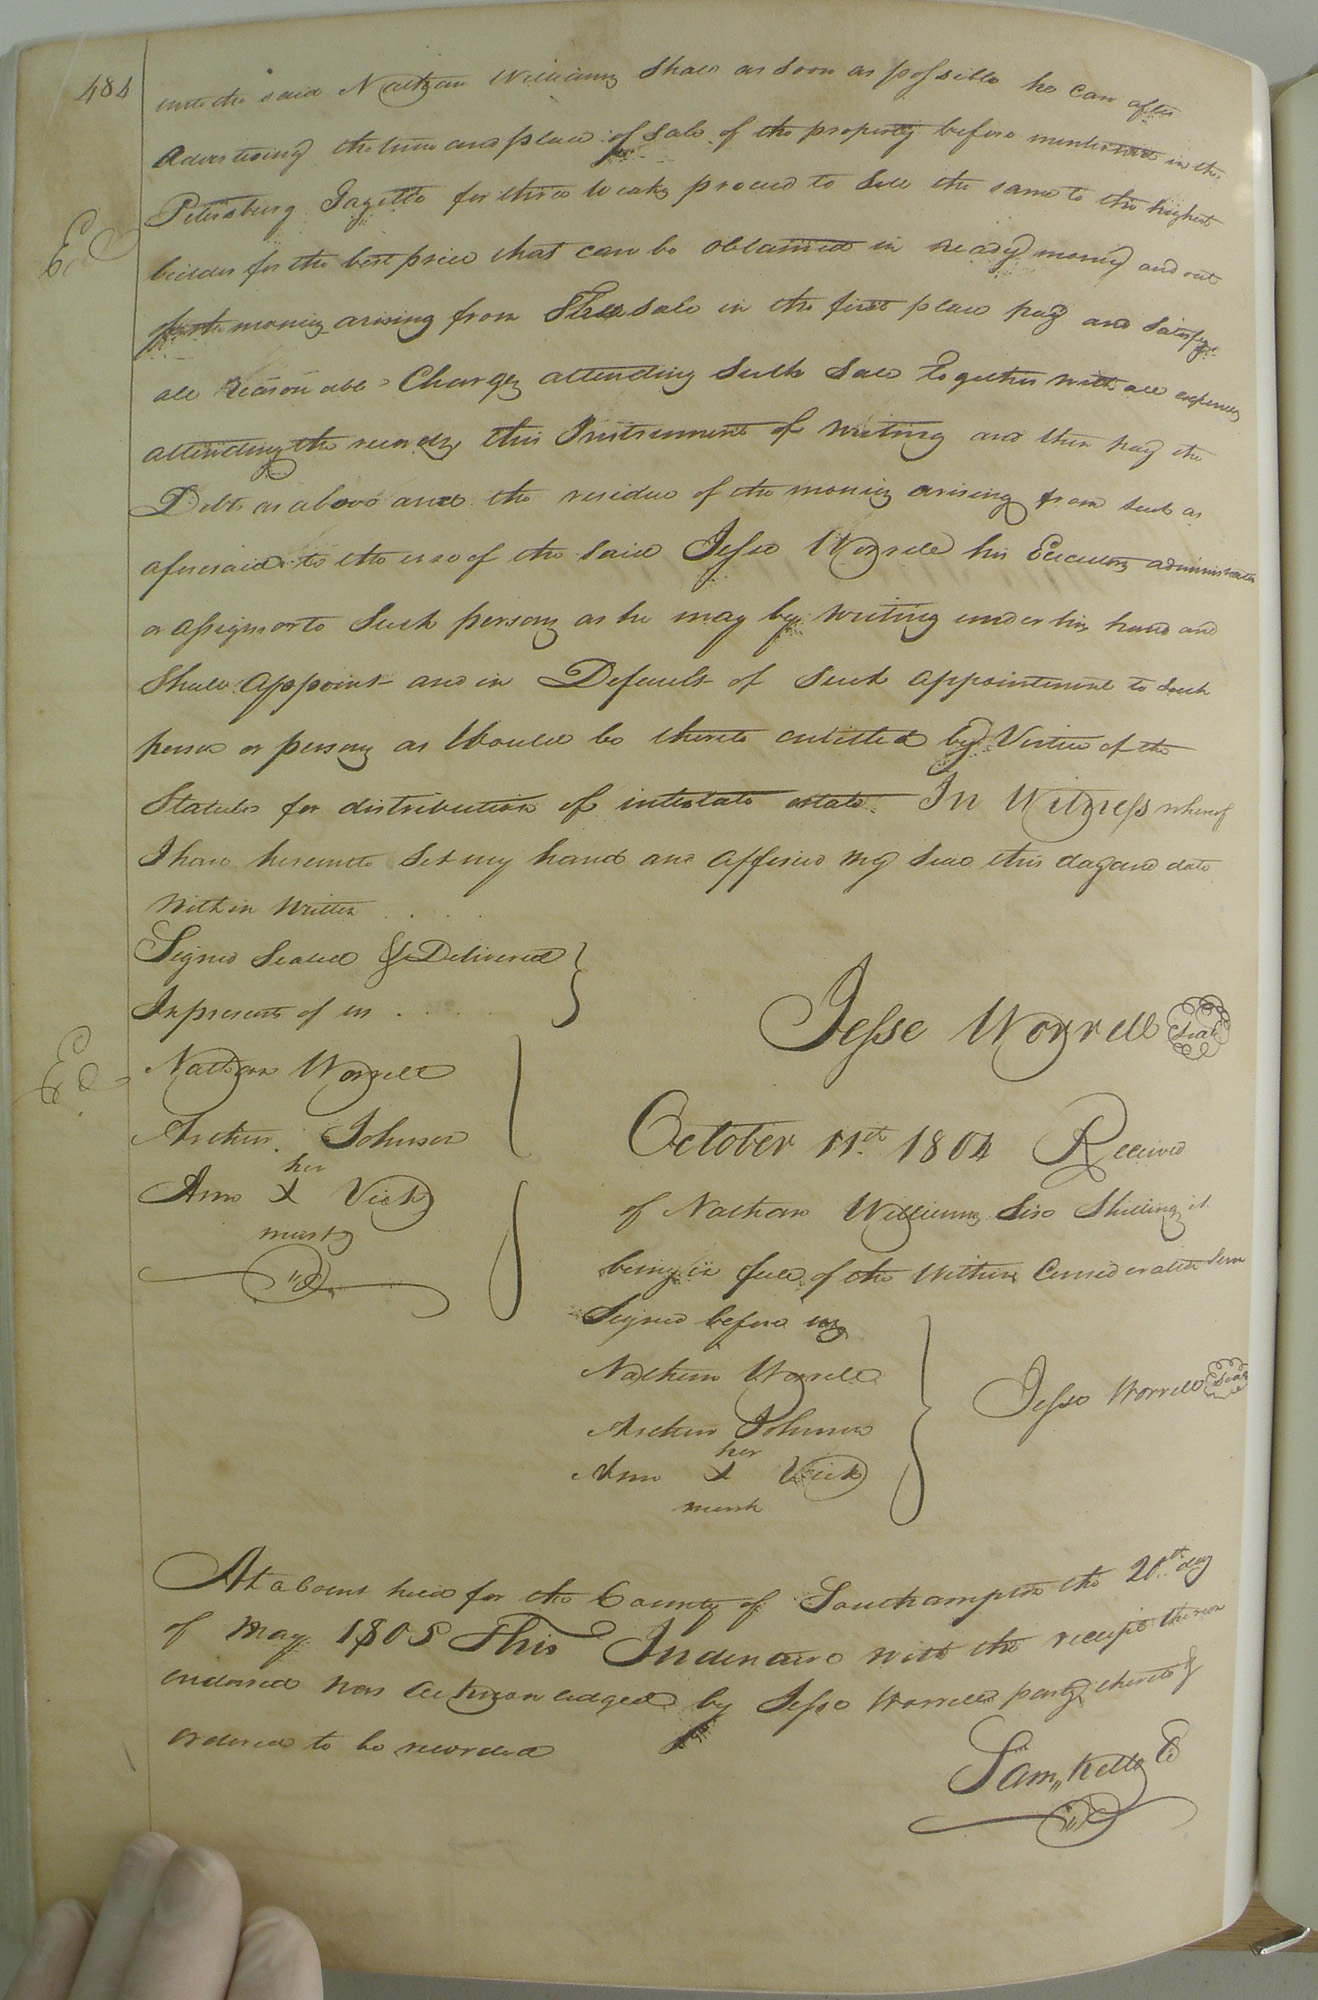 484
unto the said Nathan Williams Shall as Soon as possible he Can after
Advertising the time and place of Sale of the property before mentioned in the
Petersburg Gazette for three weeks proceed to Sell the same to the highest
bidder for the best price that can be obtained in ready money and out
of the money arising from the Sale in the first place pay and Satisfy
all Reasonable Charges attending Such Sale Together with all expences
attending the recordg this Instrument of writing and then pay the
Debts as above and the residue of the money arising from such as
aforesaid to the use of the said Jesse Worrell his Executors administrators
or assigns or to Such persons as he may by writing under his hand and
Shall Appoint and in Default of Such appointment to such
person or persons as Would be thereto entitled by Virtue of the
Statutes for distribution of intestate estate. In Witness whereof
I have hereunto Set my hand and affixed my Seal this day and date
Within Written . . . .
Signed Sealed & Delivered
In presents of us . . . .
Jesse Worrell Seal
Nathan Worrell
Archer Johnson
her
Ann X Vick
mark
October 11th 1804 Received
of Nathan Williams Six Shillings it
being in full of the Within Consideration Sum
Signed before us
Nathan Worrell
Archer Johnson
her
Ann X Vick
mark
Jesse Worrell Seal
At a Court held for the County of Southampton the 20th day
of May 1805 This Indenture with the receipt thereon
endorsed was acknowledged by Jesse Worrell party thereto &
ordered to be recorded
Sam,, Kello C
Ed
Ed